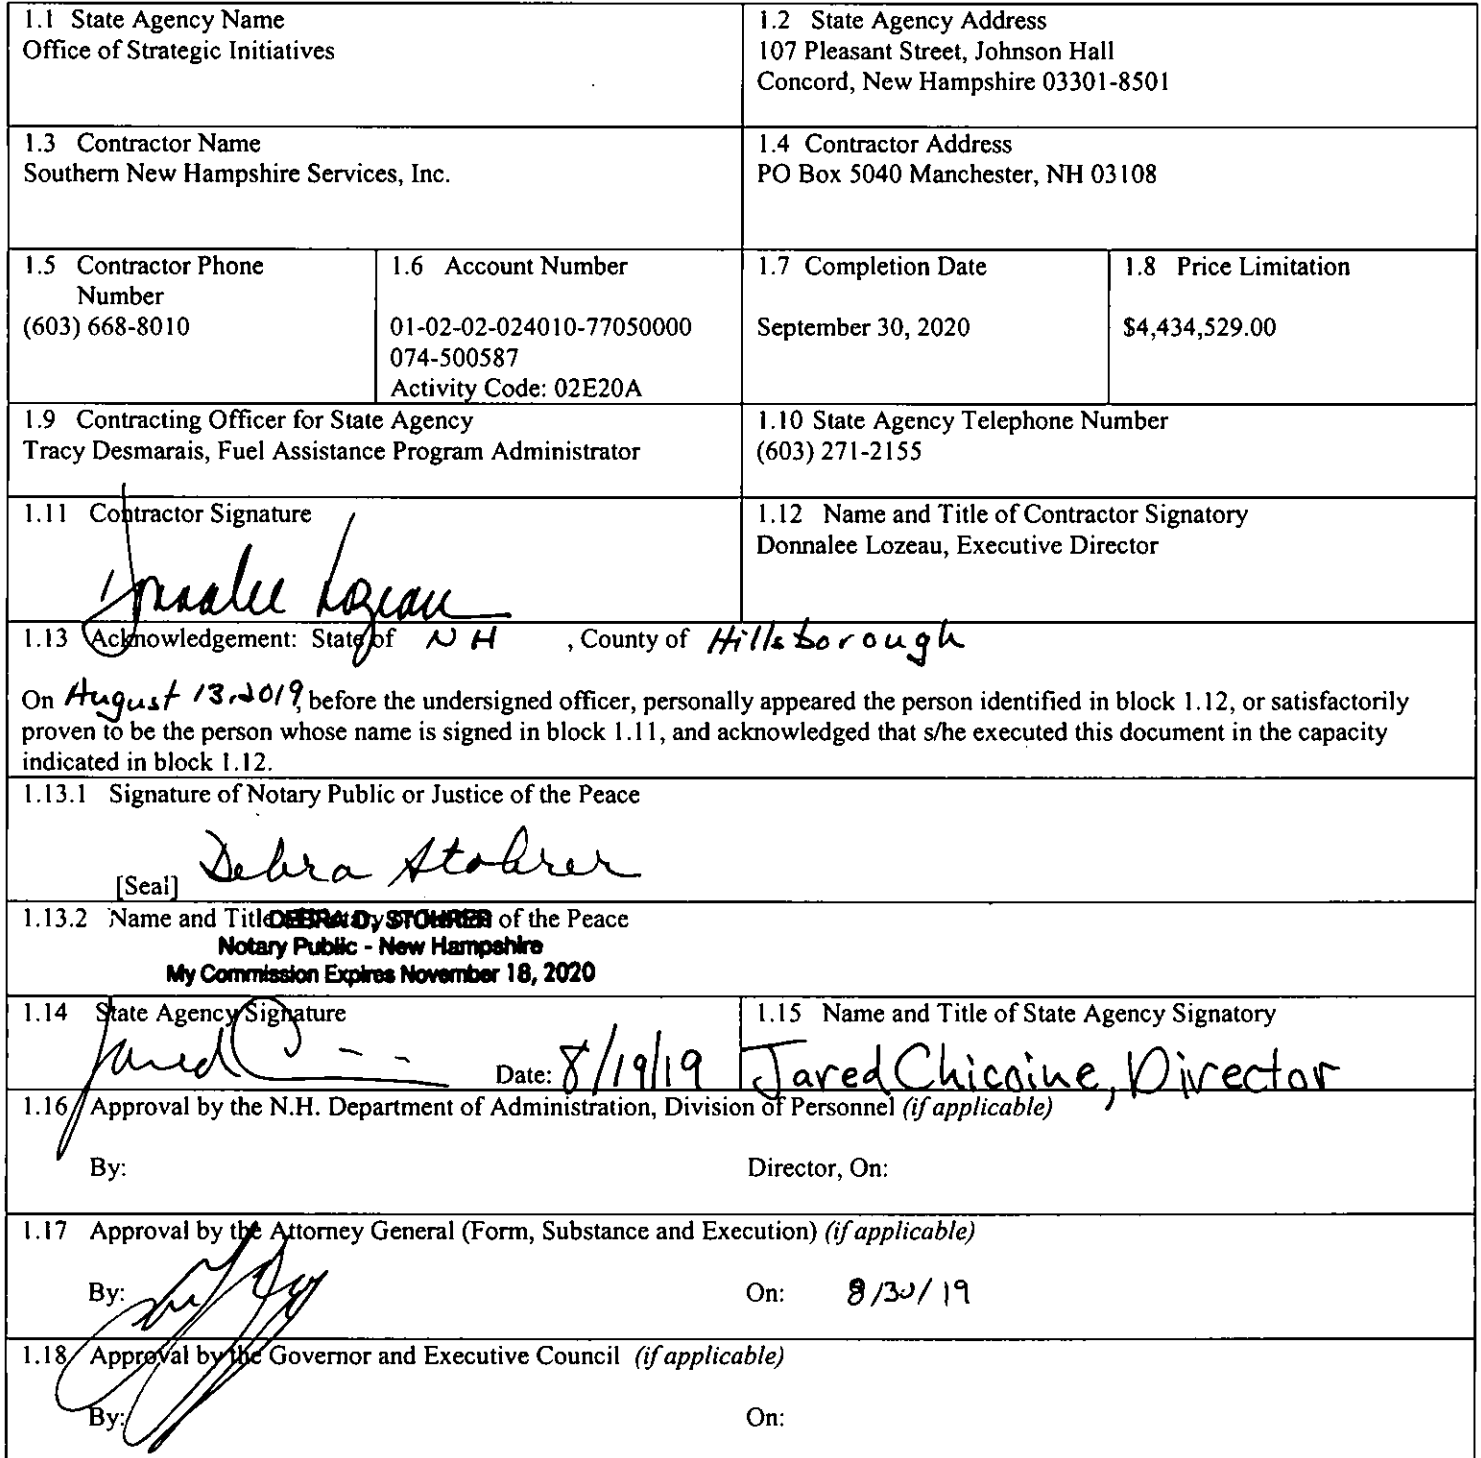 1.1 State Agency Name
Office of Strategic Initiatives
1.2 State Agency Address
107 Pleasant Street, Johnson Hall
Concord, New Hampshire 03301-8501
1.3 Contractor Name
Southern New Hampshire Services, Inc.
1.4 Contractor Address
PO Box 5040 Manchester, NH 03108
1.5 Contractor Phone
Number
(603) 668-8010
1.6 Account Number
01-02-02-024010-77050000
074-500587
Activity Code: 02E20A
1.7 Completion Date
September 30, 2020
1.8 Price Limitation
$4,434,529.00
1.9 Contracting Officer for State Agency
Tracy Desmarais, Fuel Assistance Program Administrator
1.10 State Agency Telephone Number
(603) 271-2155
1.11 Contractor Signature
Donnalee Lozeau
1.12 Name and Title of Contractor Signatory
Donnalee Lozeau, Executive Director
1.13 Acknowledgement: State of NH , County of Hillsborough
On August 13, 2019, before the undersigned officer, personally appeared the person identified in block 1.12, or satisfactorily
proven to be the person whose name is signed in block 1.11, and acknowledged that s/he executed this document in the capacity
indicated in block 1.12.
1.13.1 Signature of Notary Public or Justice of the Peace
[Seal] Debra Stohrer
1.13.2 Name and Title of the Peace
DEBRA D. STOHRER
Notary Public - New Hampshire
My Commission Expires November 18, 2020
1.14 State Agency Signature
Jared C
Date: 8/19/19
1.15 Name and Title of State Agency Signatory
Jared Chicoine, Director
1.16 Approval by the N.H. Department of Administration, Division of Personnel (if applicable)
By: Director, On:
1.17 Approval by the Attorney General (Form, Substance and Execution) (if applicable)
By: On: 8/30/19
1.18 Approval by the Governor and Executive Council (if applicable)
By: On: